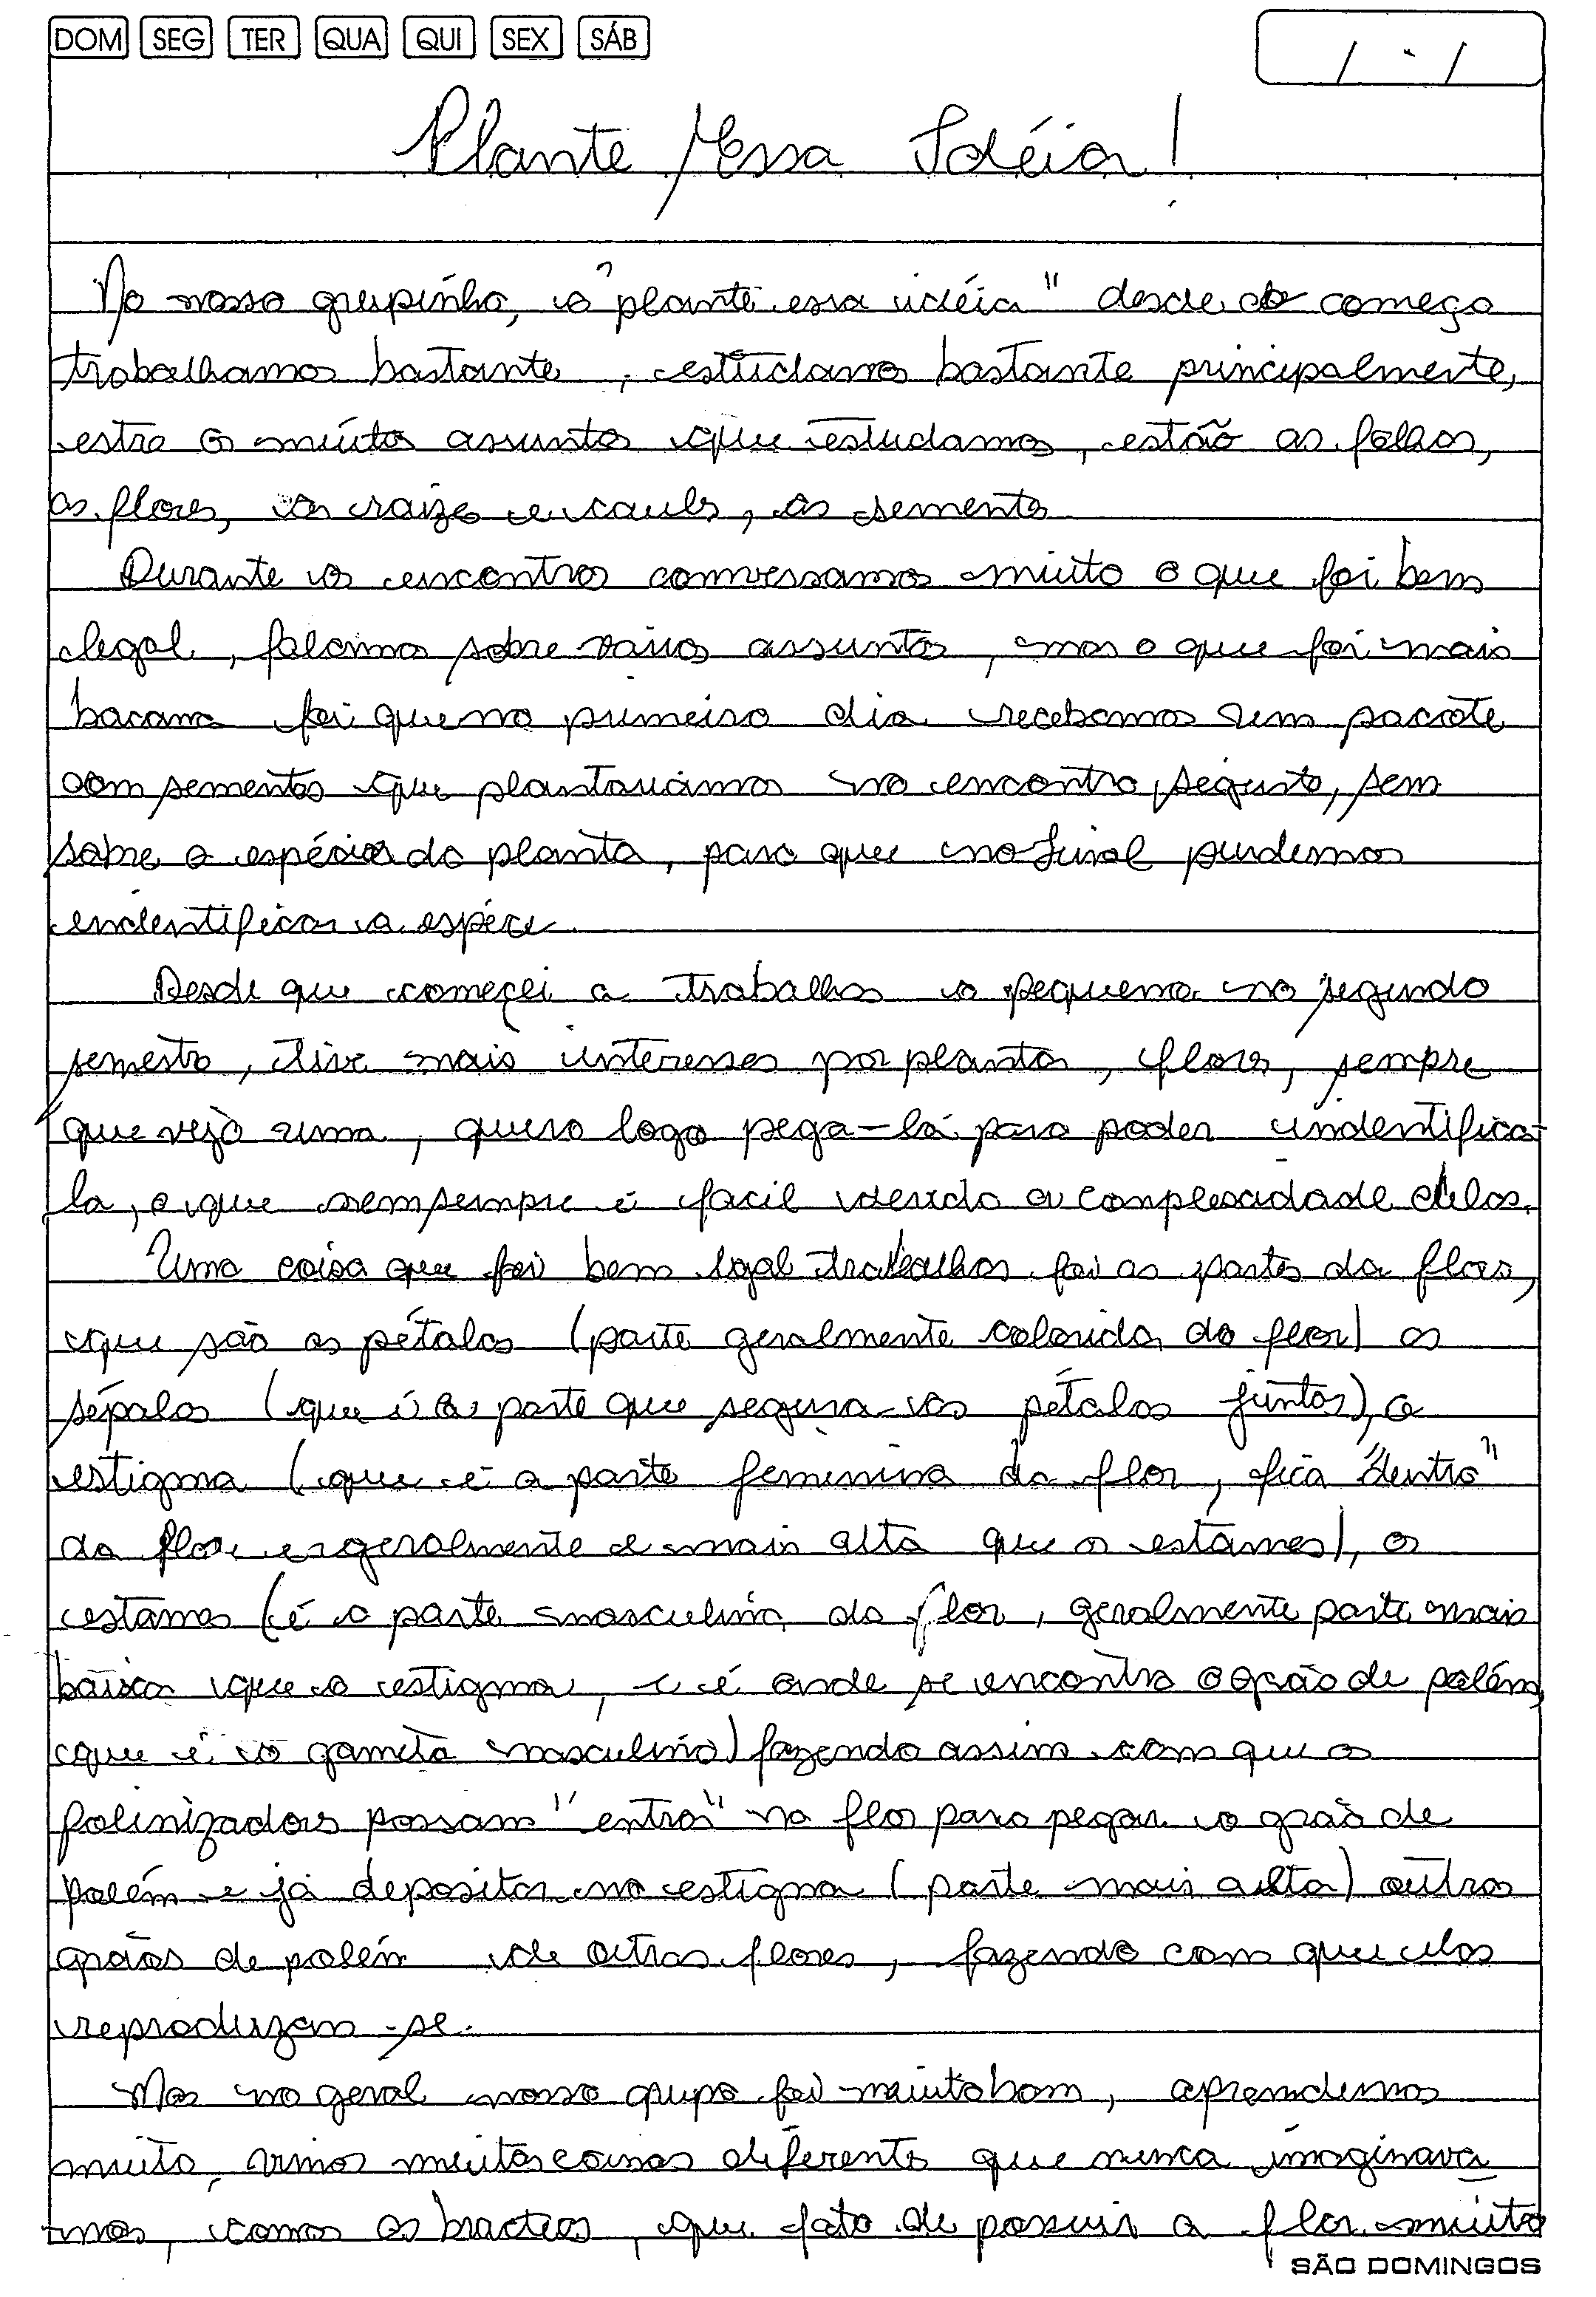 DOM SEG TER QUA QUI SEX SÁB
/ - /
Plante Essa Idéia!
No nosso grupinho, o "plante essa idéia" desde o começo
trabalhamos bastante, estudamos bastante principalmente,
estre os muitos assuntos que estudamos, estão as folhas,
as flores, as raizes e caules, as sementes
Durante os encontros conversamos muito o que foi bem
legal, falamos sobre vários assuntos, mas o que foi mais
bacana foi que no primeiro dia recebamos um pacote
com sementes que plantavamos no encontro, seguinte, sem
sabre a espécie da planta, para que no final pudemos
endentificar a espéce
Desde que começei a trabalhar o pequeno no segundo
semestre, tive mais interesses por plantas, flores, sempre
que vejo uma, quero logo pega-lá para poder indentifica-
la, o que nem sempre é facil devido a complexidade delas.
Uma coisa que foi bem legal trabalhar foi as partes da flor,
que são as pétalas (parte geralmente colorida da flor) as
sépalas (que é a parte que segura as pétalas juntas), o
estigma (que é a parte feminina da flor, fica "dentro"
da flor e geralmente e mais alta que os estames), os
estames (é a parte masculina da flor, geralmente parte mais
baixa que o estigma, e é onde se encontra o grão de polém,
que é o gameta masculino) fazendo assim com que os
polinizadores possam "entrar" na flor para pegar o grão de
polém e já depositar no estigma (parte mais alta) outros
grãos de polém de outras flores, fazendo com que elas
reproduzam-se.
Mas no geral nosso grupo foi muito bom, aprendemos
muito, vimos muitas coisas diferentes que nunca imaginava
mos, como as bracteas, que fato de possuir a flor muito
SÃO DOMINGOS